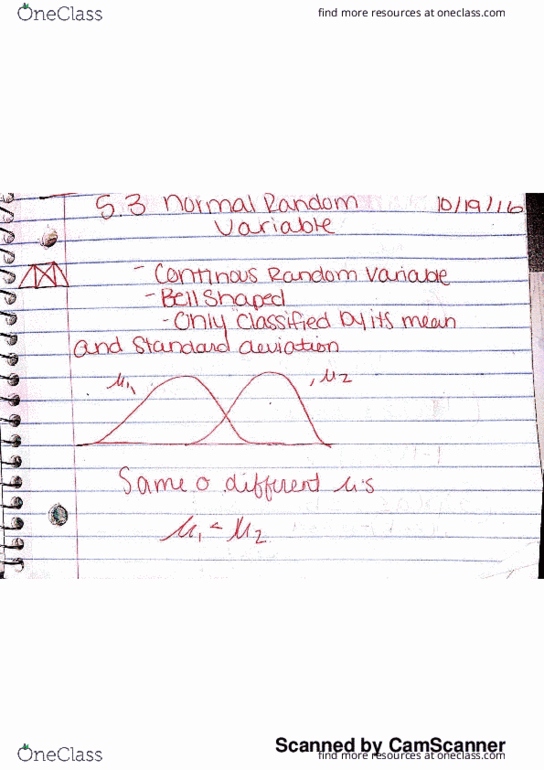 OneClass
find more resources at oneclass.com
5.3 Normal Random
Variable
10/19/16
- Continous Random Variable
- Bell Shaped
- Only classified by its mean
and standard deviation
μ₁
μ₂
Same σ different μ's
μ₁ < μ₂
Scanned by CamScanner
OneClass
find more resources at oneclass.com